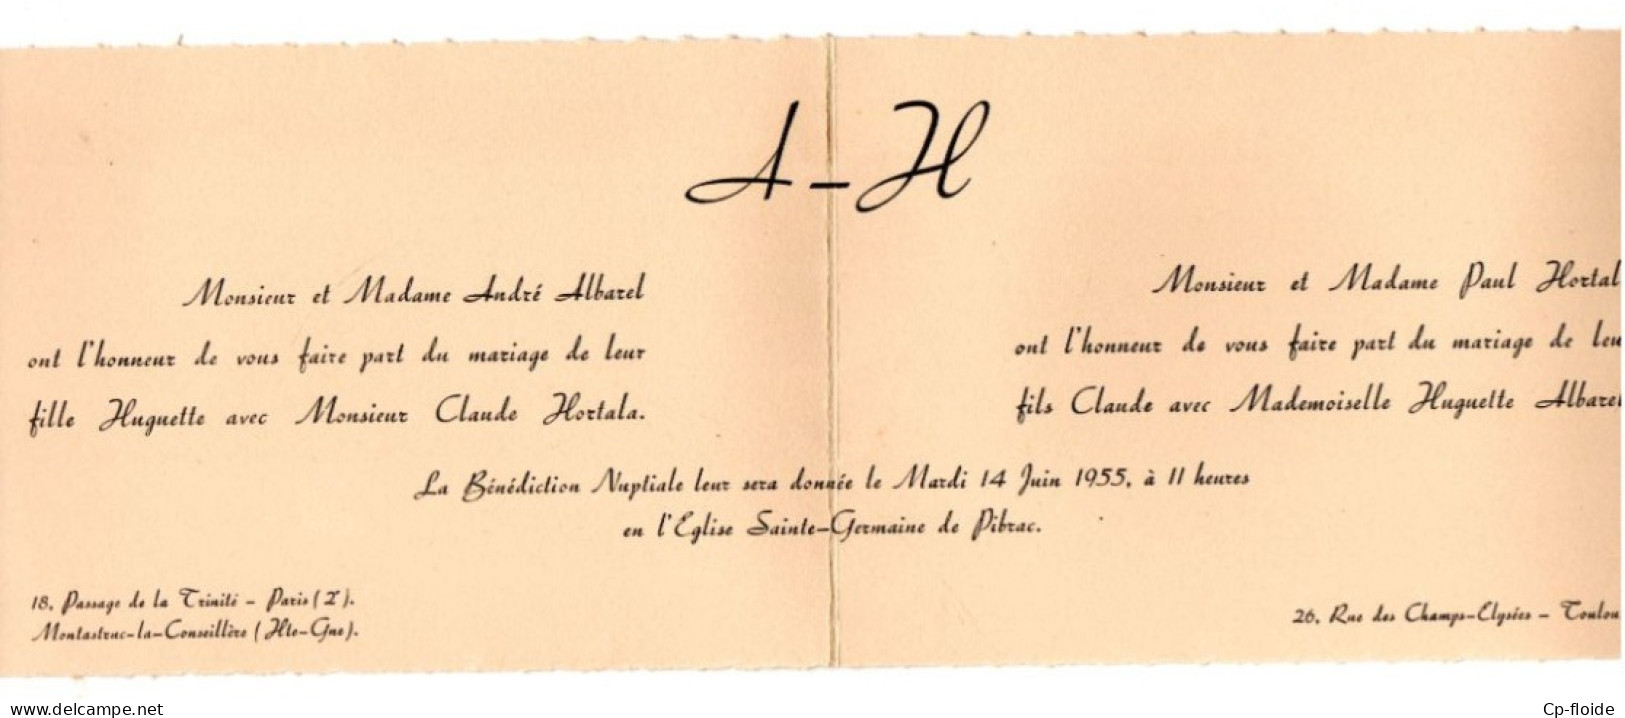 A-H
Monsieur et Madame André Albarel
ont l'honneur de vous faire part du mariage de leur
fille Huguette avec Monsieur Claude Hortala.
Monsieur et Madame Paul Hortal
ont l'honneur de vous faire part du mariage de leu
fils Claude avec Mademoiselle Huguette Albarel
La Bénédiction Nuptiale leur sera donnée le Mardi 14 Juin 1955, à 11 heures
en l'Eglise Sainte-Germaine de Pibrac.
18, Passage de la Trinité - Paris (2).
Montastruc-la-Conseillère (Hte-Gne).
26, Rue des Champs-Elysées - Toulou
www.delcampe.net
Cp-floide